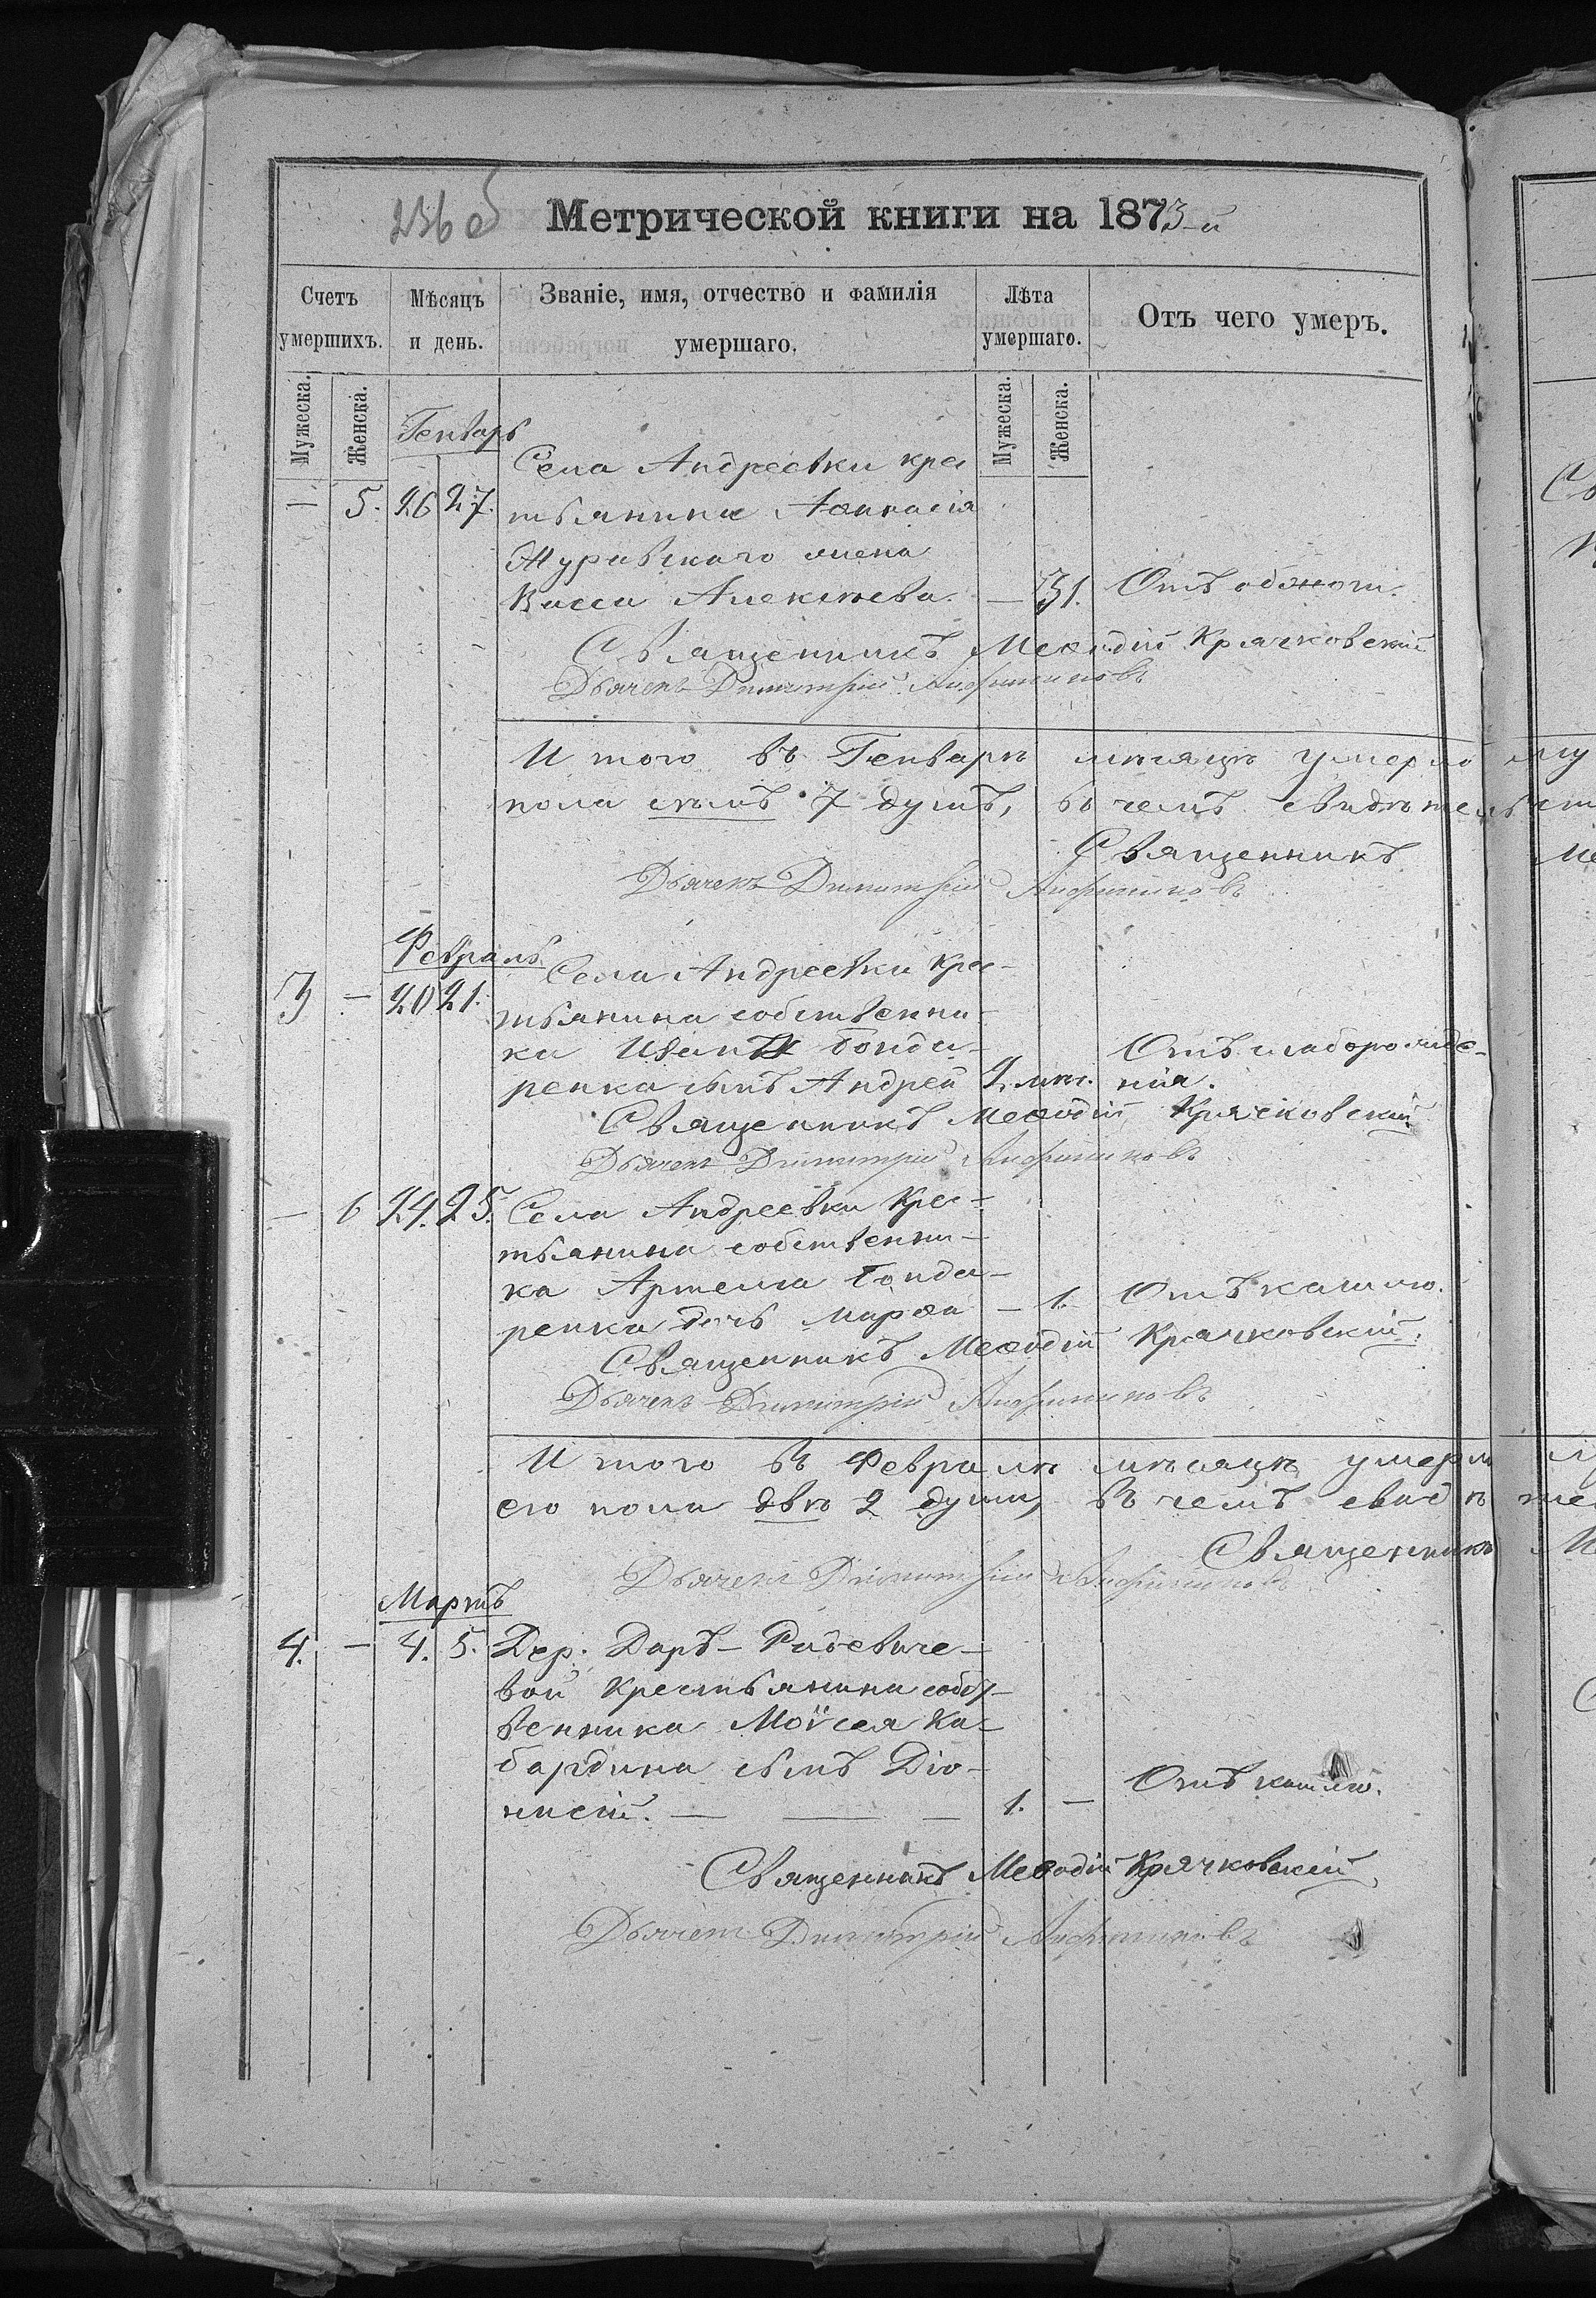 236 об
Метрической книги на 1873-й
Счетъ умершихъ.
Мѣсяцъ и день.
Званіе, имя, отчество и фамилія умершаго.
Лѣта умершаго.
Отъ чего умеръ.
Мужеска.
Женска.
Мужеска.
Женска.
Генварь
Села Андреевки кре
— 5. 26 27. стьянина Аѳанасія
Журавскаго жена
Васса Алексѣева. — 31. Отъ
Священникъ Меѳодій Крячковскій
Дьячекъ Димитрій
И того въ Генварѣ мѣсяцѣ умерло му
пола семь 7 душъ, въ чемъ свидѣтельст
Священникъ Ме
Дьячекъ Димитрій
Февраль
Села Андреевки кре-
3 — 20 21. стьянина собственни-
ка Ивана Бонда-
ренка сынъ Андрей 2. мѣс. Отъ слаборожде-
нія.
Священникъ Меѳодій Крячковскій
Дьячекъ Димитрій
— 6 24. 25. Села Андреевки кре-
стьянина собственни-
ка Артема Бонда-
ренка дочь Марѳа — 1. Отъ кашлю.
Священникъ Меѳодій Крячковскій.
Дьячекъ Димитрій
И того въ Февралѣ мѣсяцѣ умерл
его пола двѣ 2 души, въ чемъ свидѣте
Священникъ Ме
Дьячекъ Димитрій
Мартъ
4. — 4. 5. Дер. Даръ-
вой крестьянина собст-
венника Моѵсея Ка-
бардина сынъ Діо-
нисій. — — — 1. — Отъ кашлю.
Священникъ Меѳодій Крячковскій
Дьячекъ Димитрій